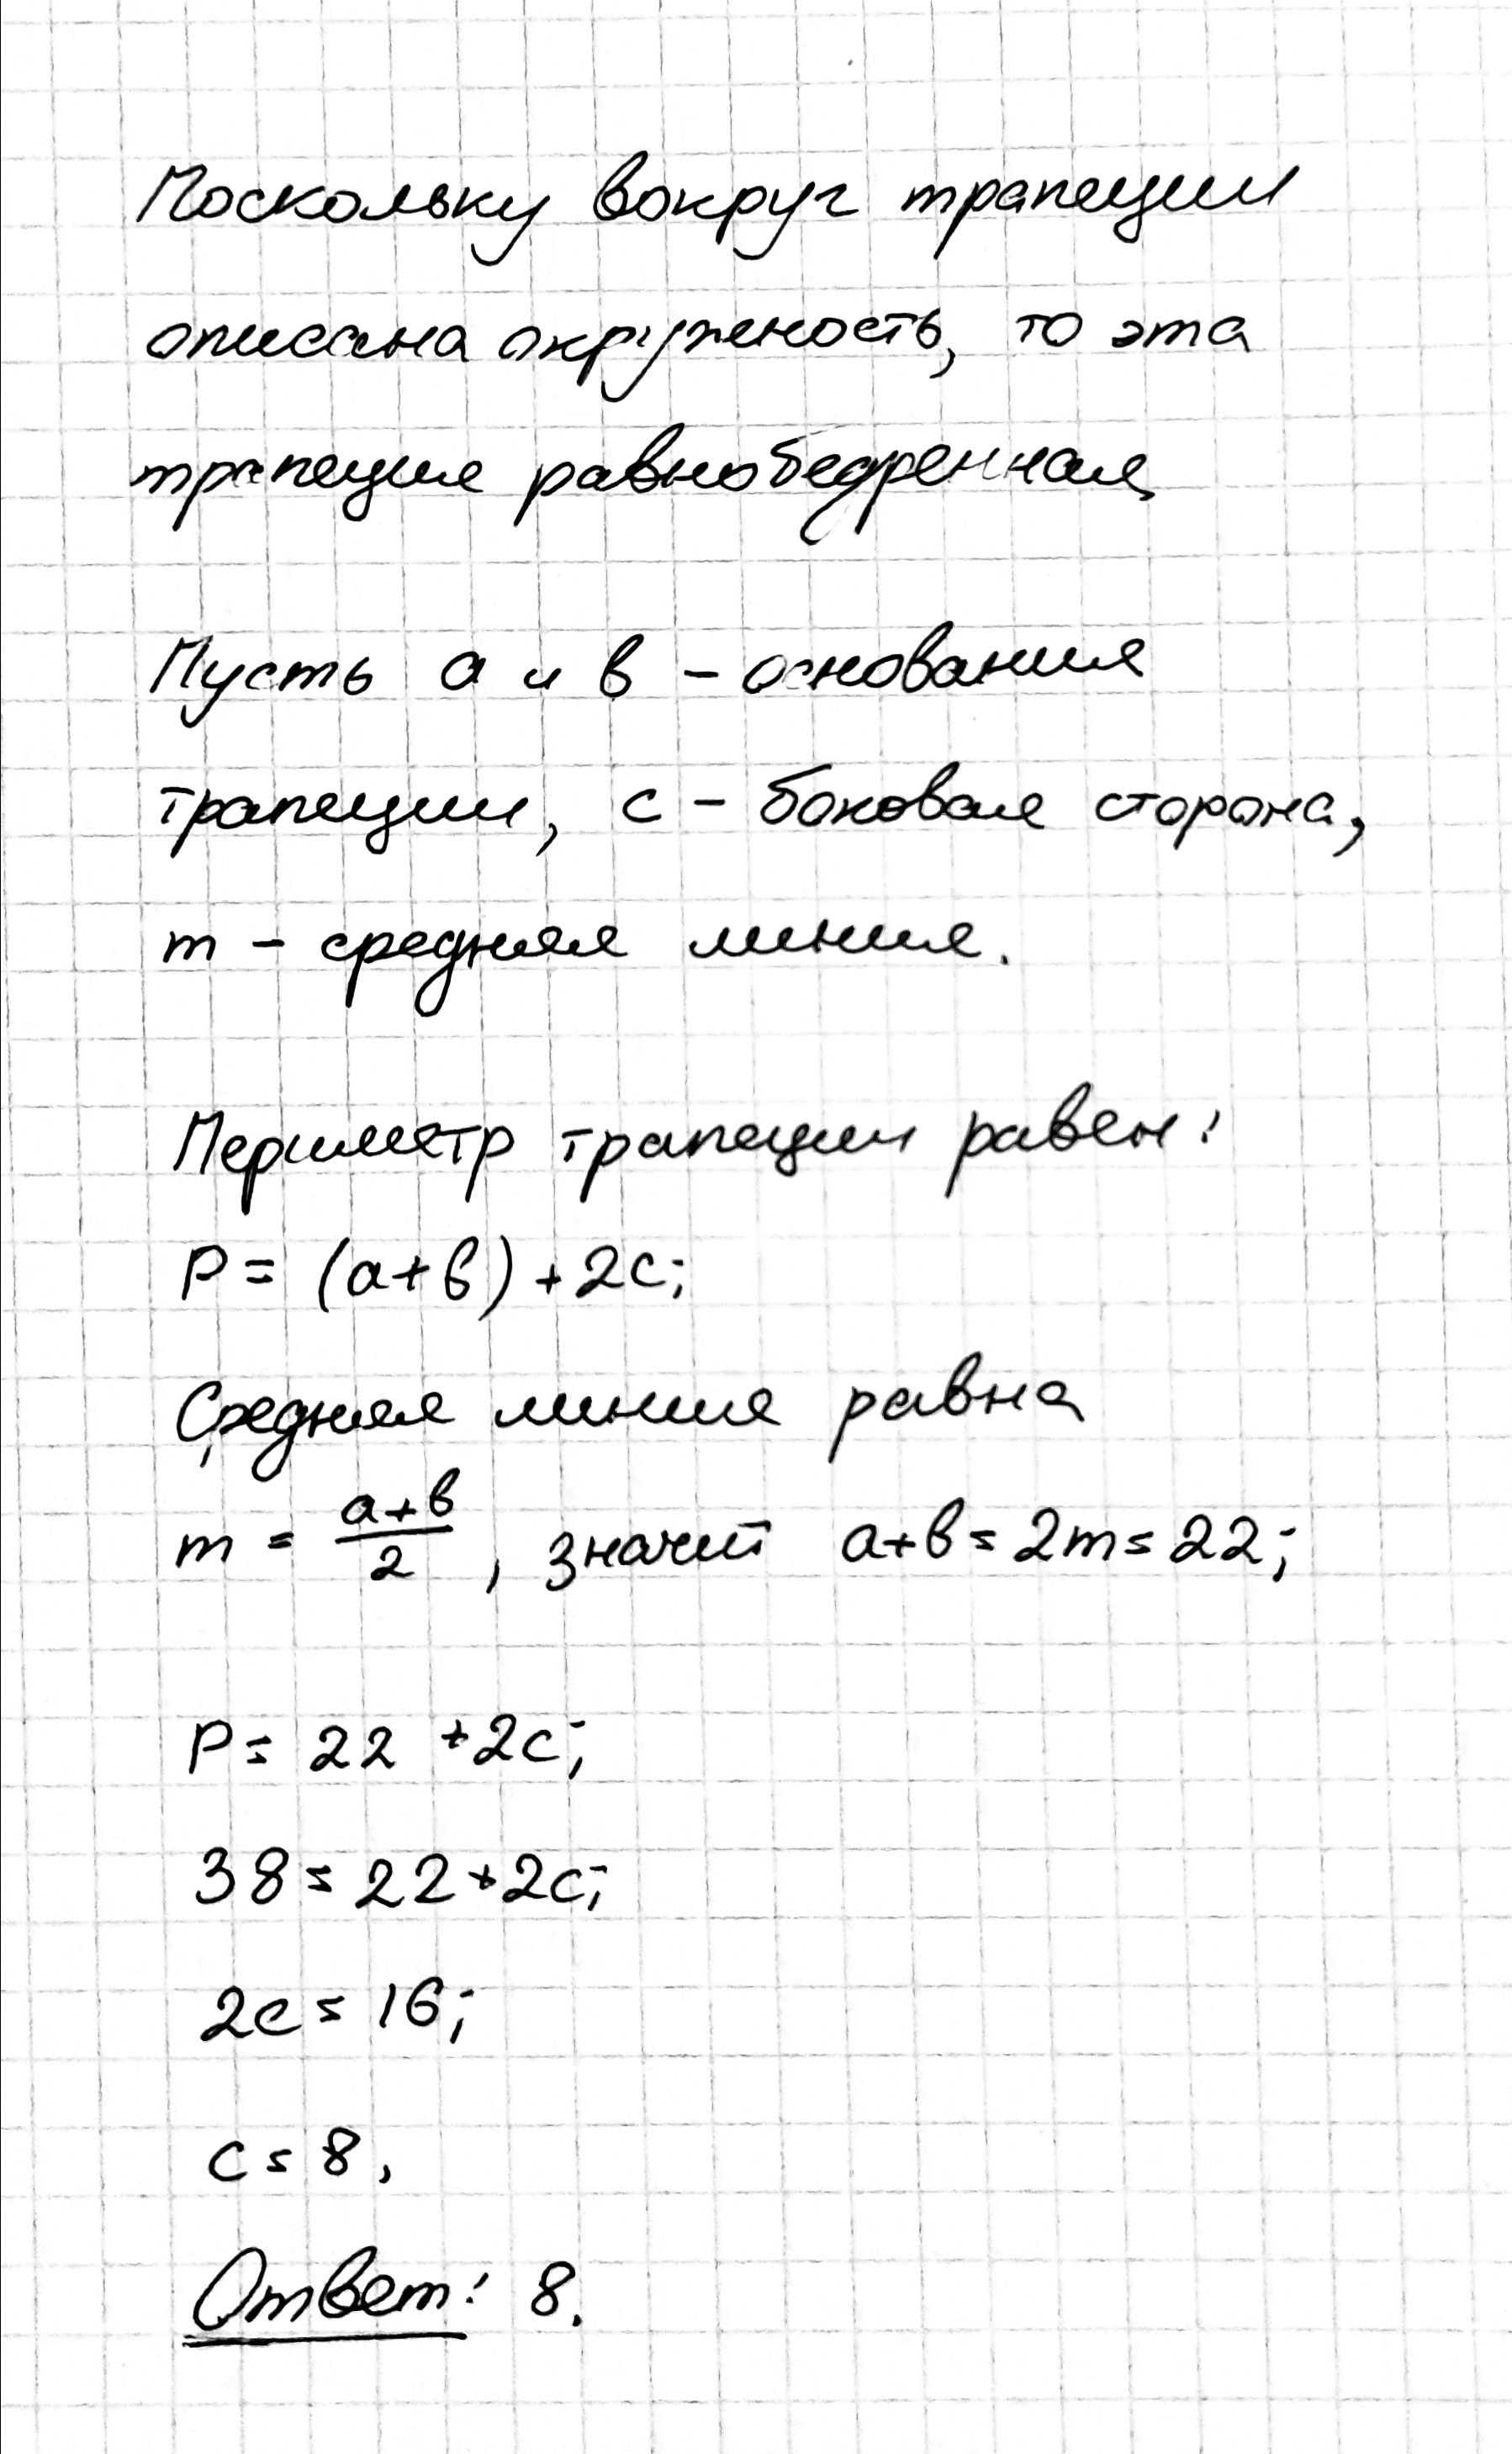 Поскольку вокруг трапеции
описана окружность, то эта
трапеция равнобедренная
Пусть a и b – основания
трапеции, c – боковая сторона,
m – средняя линия.
Периметр трапеции равен:
P = (a+b) + 2c;
Средняя линия равна
m = (a+b)/2, значит a+b = 2m = 22;
P = 22 + 2c;
38 = 22 + 2c;
2c = 16;
c = 8.
Ответ: 8.